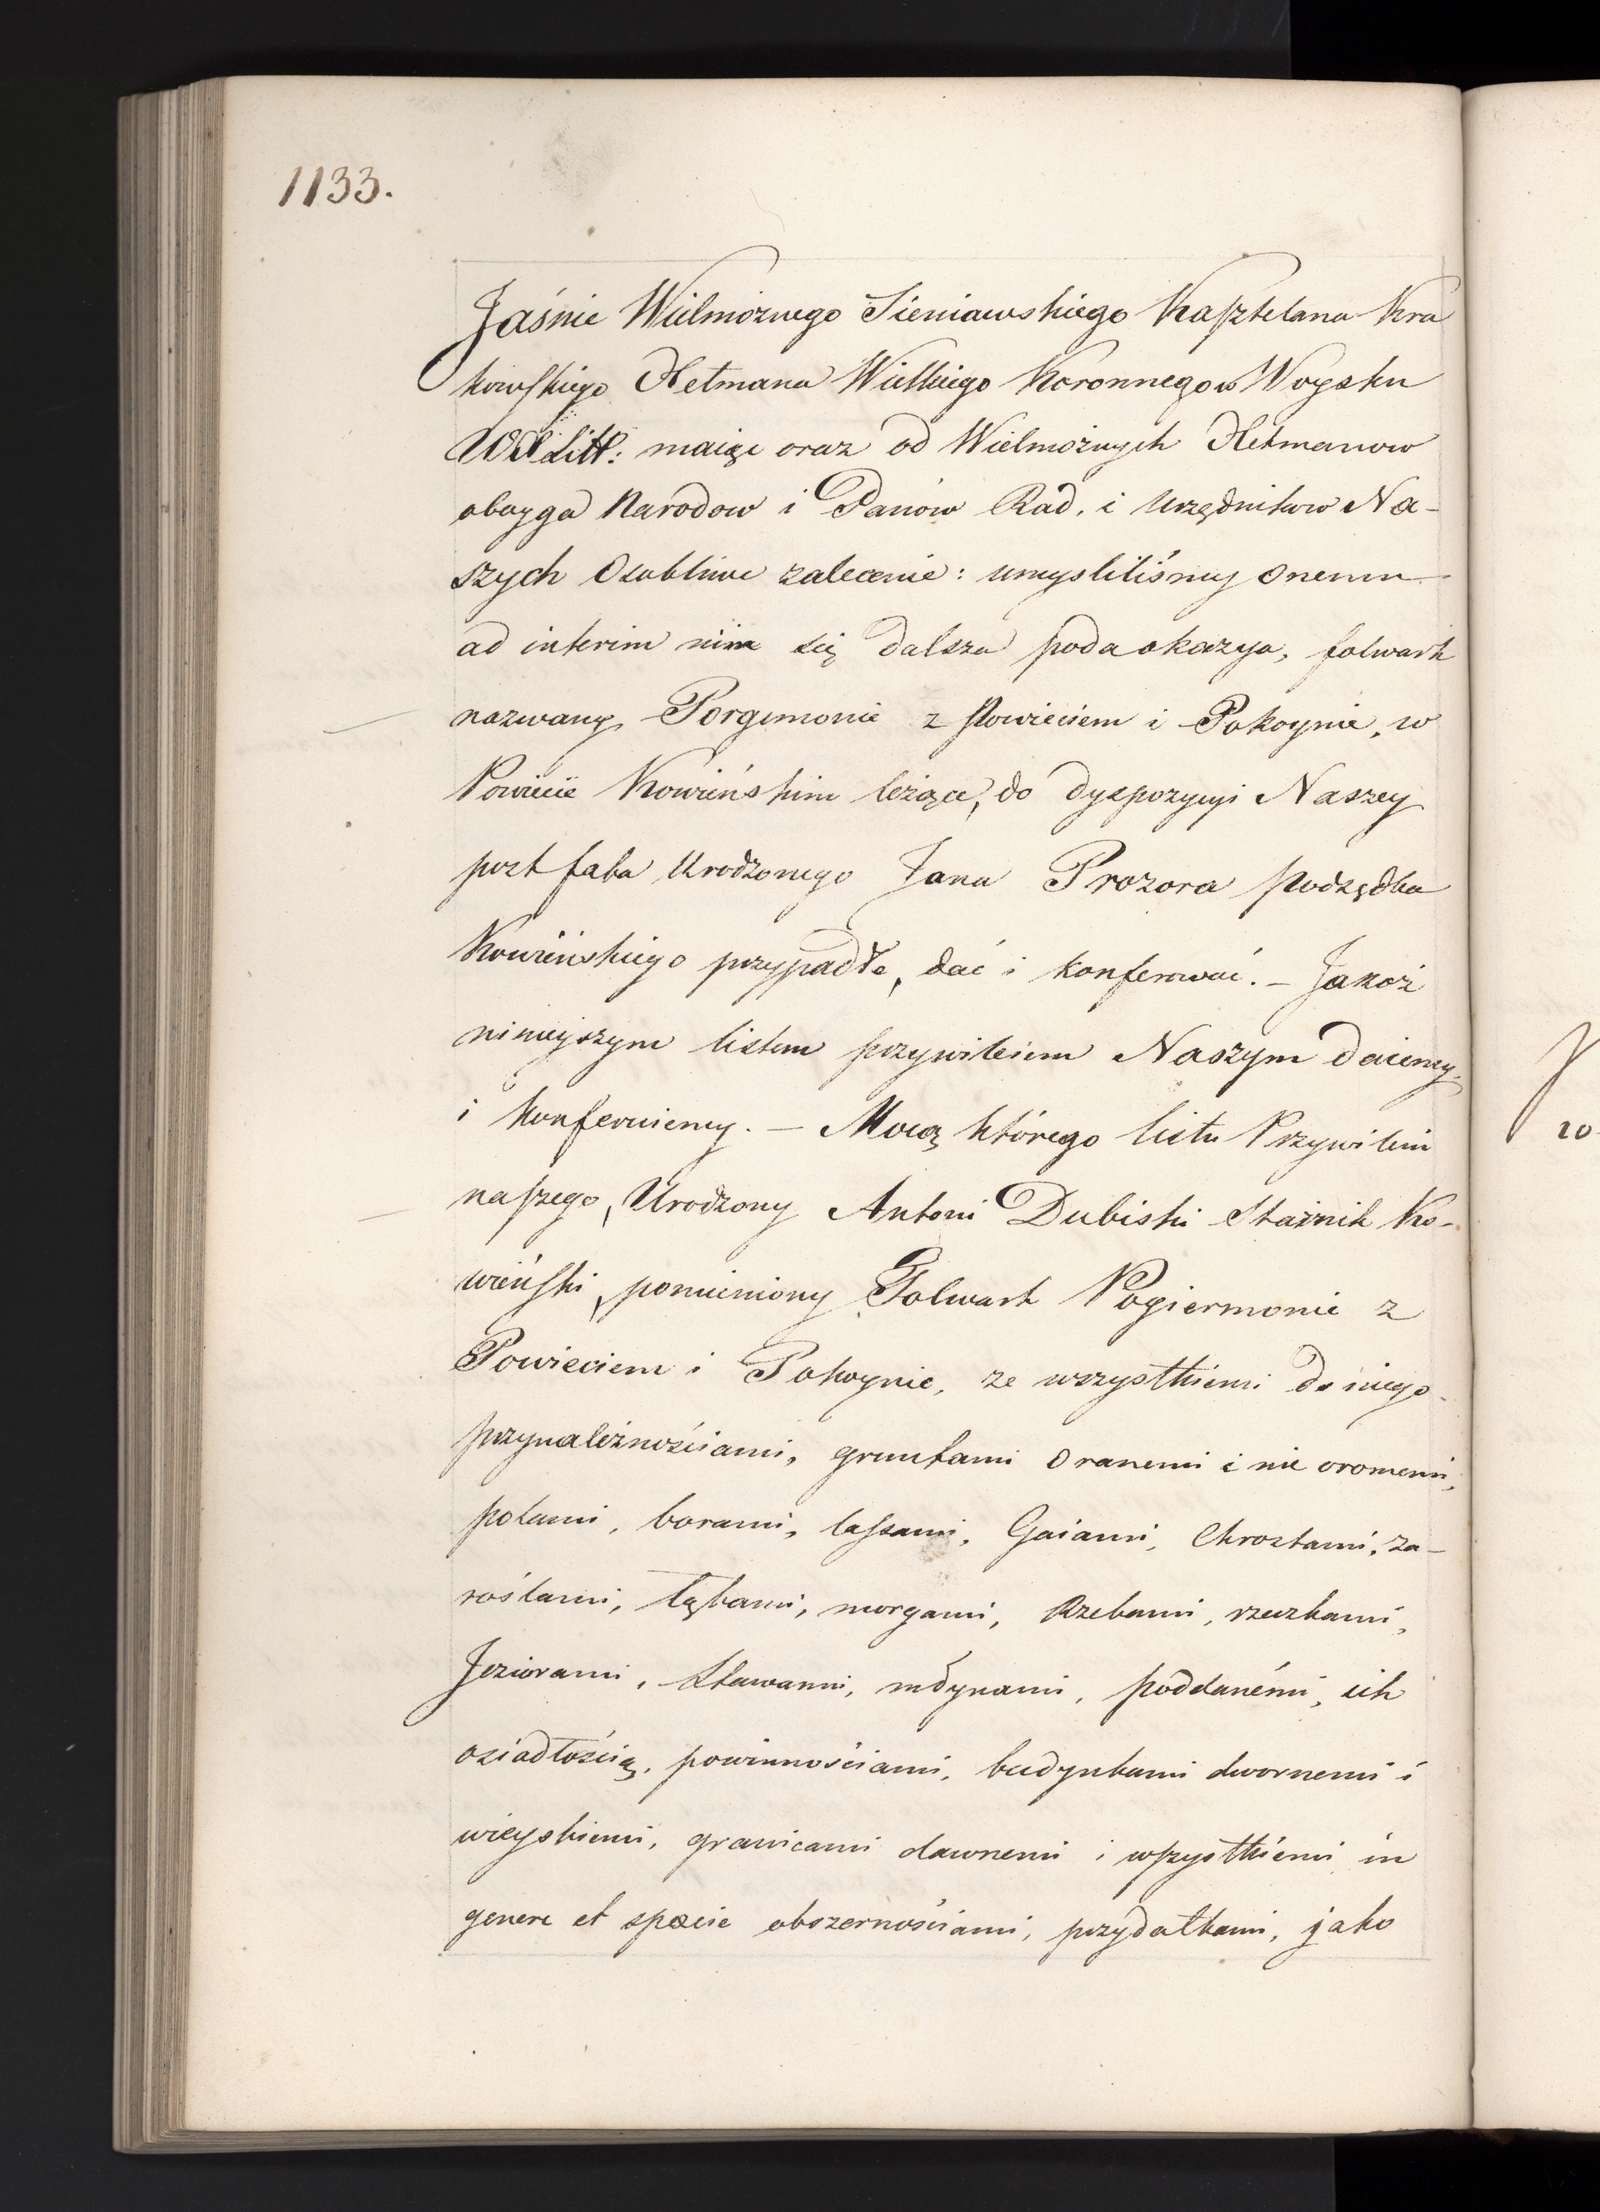 1133.
Jaśnie Wielmożnego Sieniawskiego Kasztelana Kra
kowskiego Hetmana Wielkiego Koronnego w Woysku
W X Litt: maiąc oraz od Wielmożnych Hetmanow
oboyga Narodow i Panów Rad, i Urzędnikow Na-
szych Osobliwe zalecenie: umysliliśmy onemu
ad interim nim się dalsza poda okazya, folwark
nazwany Porgimonie z Powieciem i Pokoynie, w
Powiecie Kowieńskim leżące, do dyspozycyi Naszey
post fata Urodzonego Jana Prozora Podsędka
Kowieńskiego przypadłe, dać i konferować. – Jakoż
ninieyszym listem przywileiem Naszym daiemy,
i konferuiemy. – Mocą którego listu Przywileiu
naszego, Urodzony Antoni Dubiski Strażnik Ko-
wieński, pomieniony Folwark Pogiermonie z
Powieciem i Pokoynie, ze wszystkiemi do niego
przynależnościami, gruntami oranemi i nie oromemi,
polami, borami, lassami, Gaiami, Chrostami, za-
roślami, łąkami, morgami, Rzekami, rzeczkami,
Jeziorami, Stawami, młynami, poddanémi, ich
osiadłością, powinnościami, budynkami dwornemi i
wieyskiemi, granicami dawnemi i wszystkiémi in
genere et specie obszernościami, przydatkami, jako